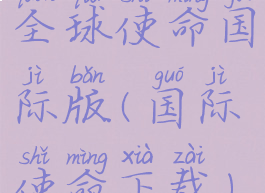 全球使命国
jì bǎn guó jì
际版(国际
shǐ mìng xià zài
使命下载)